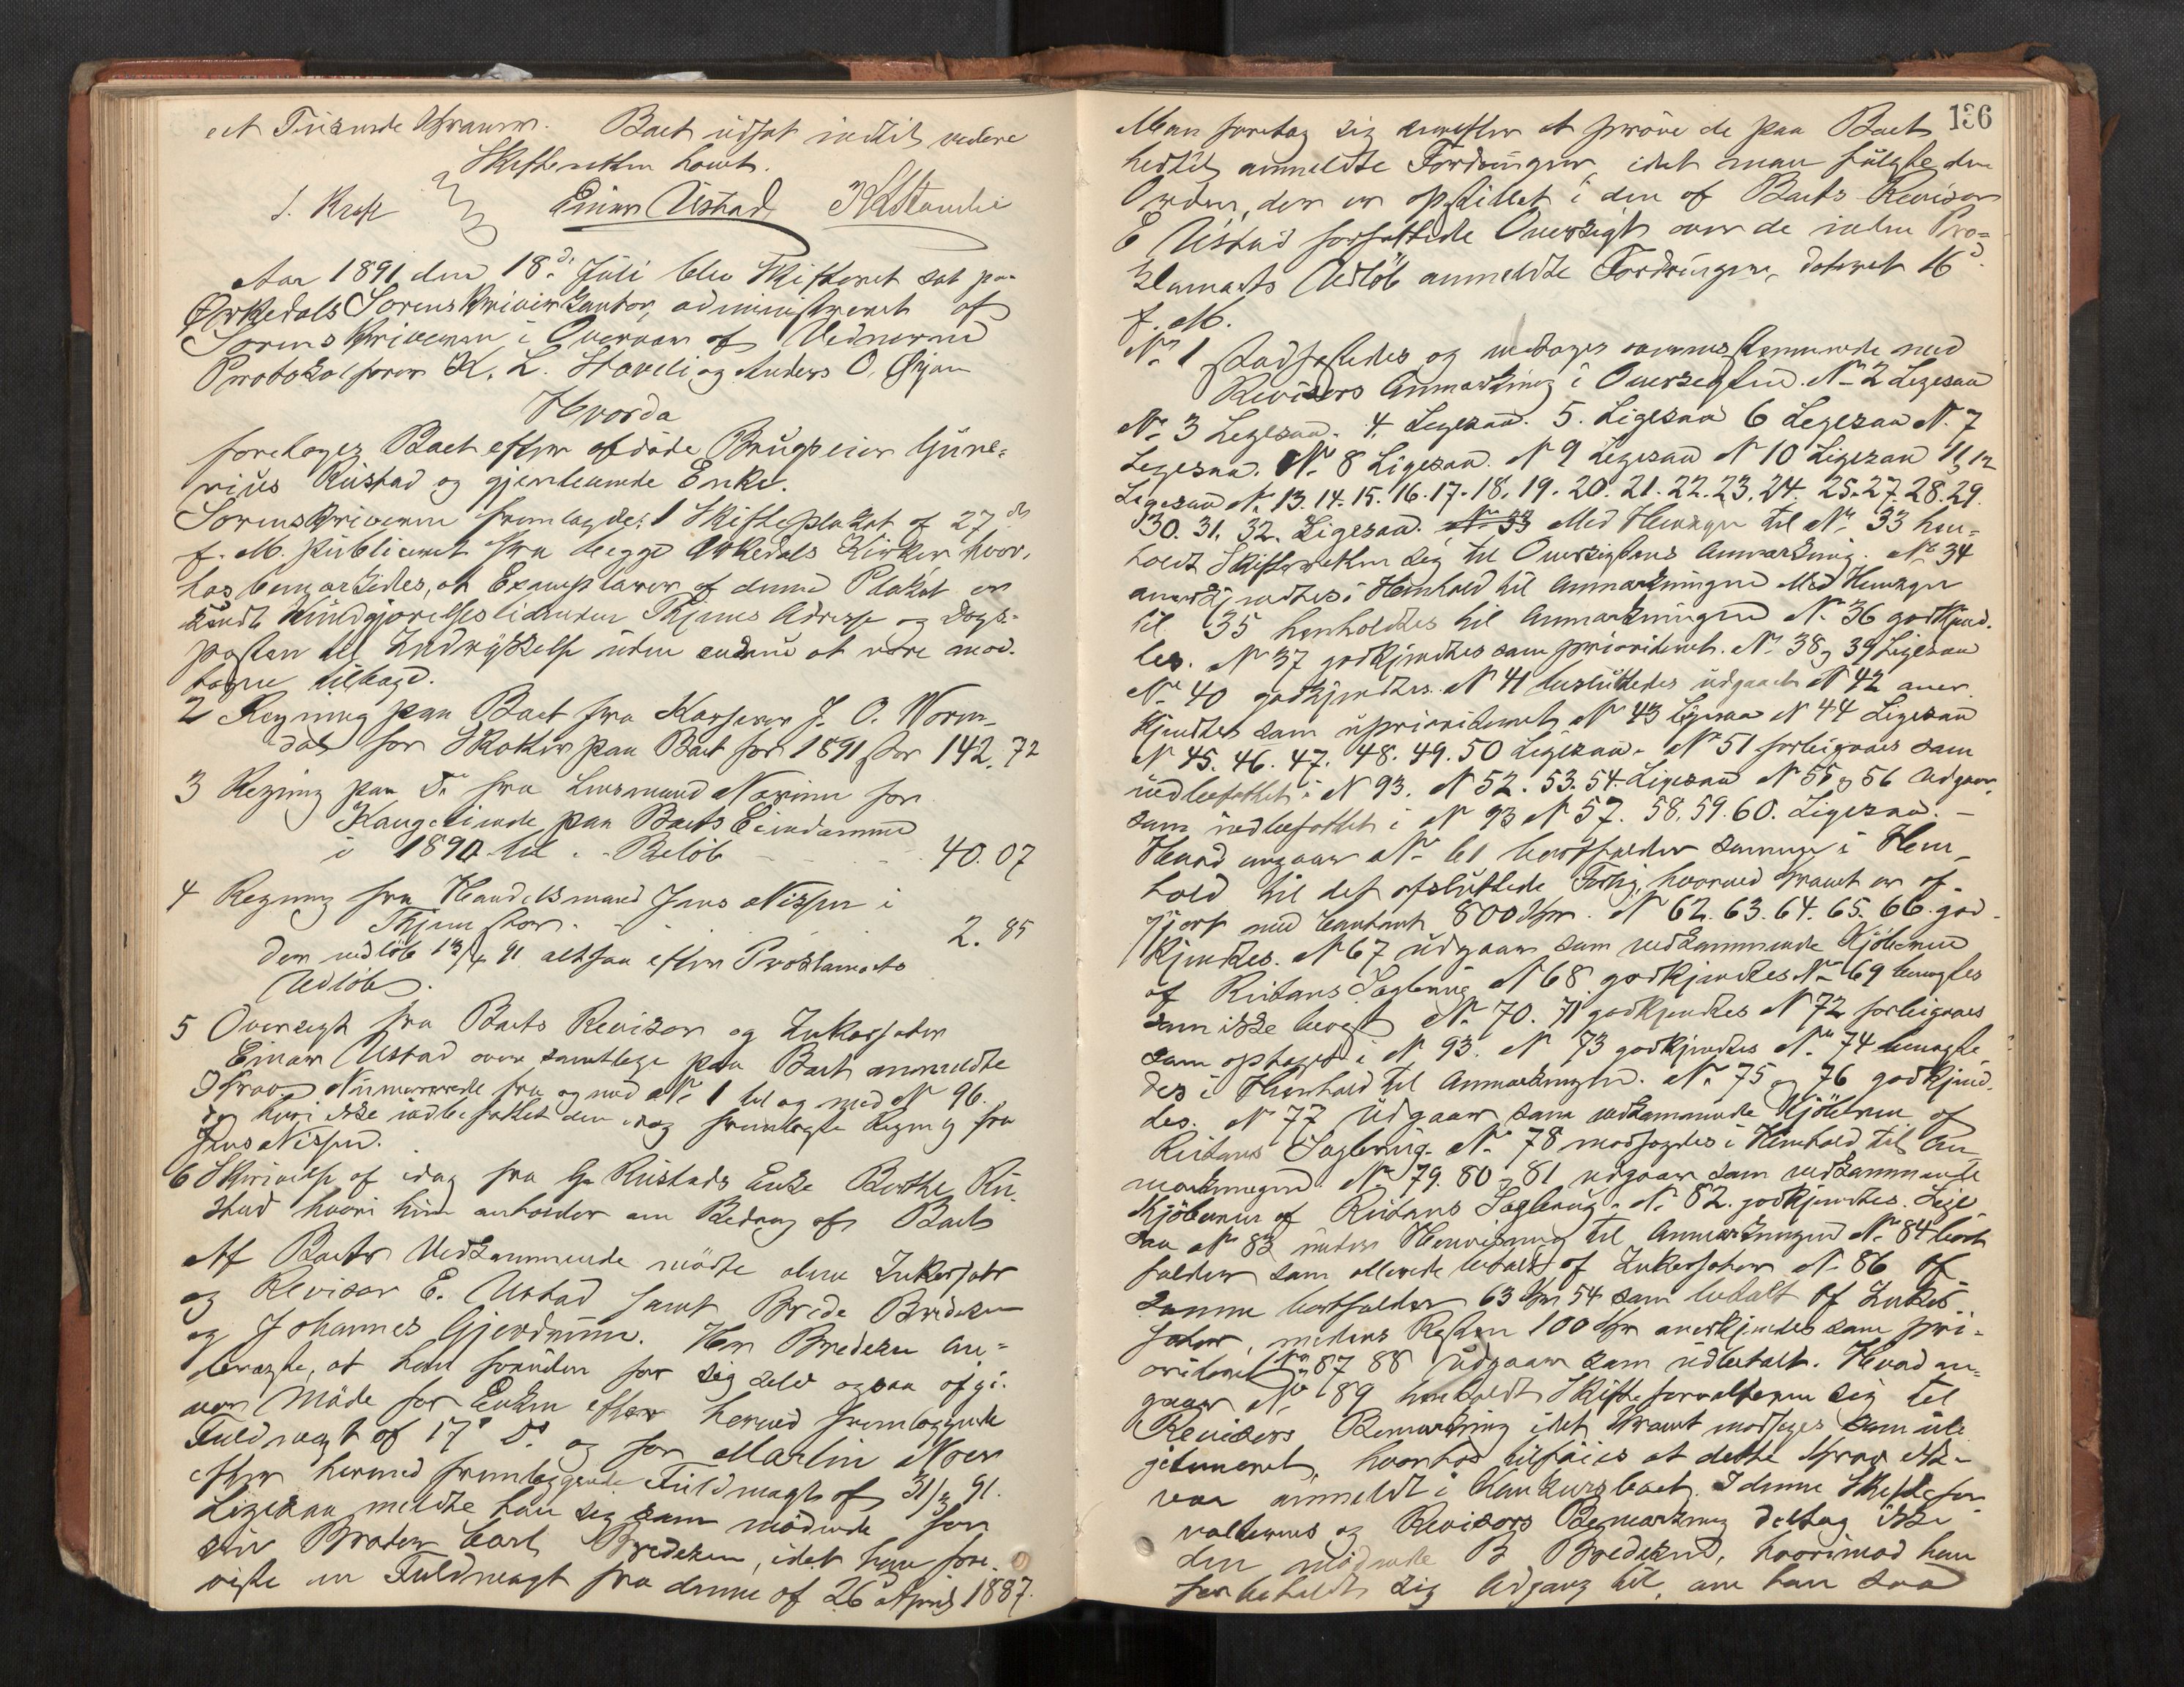 et Tusinde Kroner. Boet udsat indtil videre
Skifteretten hævet.
S. Kraft Einar Ustad K L Staveli
Aar 1891 den 18de Juli blev Skifteret sat paa
Orkedals Sorenskriverkontor, administreret af
Sorenskriveren i Overvær af Vidnerne
Protokolfører K. L. Stoveli og Anders O. Øyan
Hvorda
foretoges Boet efter afdøde Brugseier Gune-
rius Rustad og gjenlevende Enke.
Sorenskriveren fremlagde: 1 Skifteplakat af 27de
f. M. publiceret fra begge Orkedals Kirker hvor-
hos bemærkedes, at Exemplarer af denne Plakat er
sendt Kundgjørelsestidenden Thjems Adresse og Dags-
posten til Indrykkelse uden endnu at være mod-
tagne tilbage.
2 Regning paa Boet fra Kasserer J. O. Worm-
dal for Skatter paa Boet for 1891 stor 142.72
3 Regning paa Do fra Lensmand Norinn for
paa Boets Eiendomme
i 1890 til Beløb 40.07
4 Regning fra Handelsmand Jens Nissen i
Thjem stor 2.85
Den indløb 13/4 91 altsaa efter Proklamaets
Udløb.
5 Oversigt fra Boets Revisor og Inkassator
Einar Ustad over samtlige paa Boet anmeldte
Krav Numererede fra og med No 1 til og med No 96.
dog hvori ikke indbefattet den idag fremlagte Regning fra
Jens Nissen.
6 Skrivelse af idag fra G. Rustads Enke Berthe Ru-
stad hvori hun anholder om Bidrag af Boet
Af Boets Vedkommende mødte alene Inkassator
og Revisor E. Ustad samt Brede Bredesen
og Johannes Gjerdmunn. Herr Bredesen an-
bragte, at han foruden for sig selv ogsaa afgi-
ver Møde for Enken efter hermed fremlæggende
Fuldmagt af 17de Ds. og for Martin Moen
efter hermed fremlæggende Fuldmagt af 31/3 91.
Ligesaa meldte han sig som mødende for
sin Broder Carl Bredesen, idet han fore-
viste en Fuldmagt fra denne af 26de April 1887.
136
Man foretog sig derefter at prøve de paa Boet
hidtil anmeldte Fordringer, idet man fulgte den
Orden, der er opstillet i den af Boets Revisor
E Ustad forfattede Oversigt over de inden Pro-
klamaets Udløb anmeldte Fordringer, dateret 16de
f. M.
No 1 stadfæstedes og vedtoges overensstemmende med
Revisors Anmærkning i Oversigten. No 2 Ligesaa
No 3 Ligesaa. 4. Ligesaa. 5. Ligesaa 6 Ligesaa No 7
Ligesaa. No 8 Ligesaa. No 9 Ligesaa No 10 Ligesaa 11, 12
Ligesaa No 13. 14. 15. 16. 17. 18. 19. 20. 21. 22. 23. 24. 25. 27. 28. 29.
30. 31. 32. Ligesaa. No 33 Med Hensyn til No 33 hen-
holdt Skifteretten sig til Oversigtens Anmærkning. No 34
anerkjendtes i Henhold til Anmærkningen Med Hensyn
til 35 henholdtes til Anmærkningen No 36 godkjend-
tes. No 37 godkjendtes som prioriteret. No 38 og 39 Ligesaa
No 40 godkjendtes. No 41 besluttedes udgaaet No 42 aner-
kjendtes som uprioriteret No 43 Ligesaa No 44 Ligesaa
No 45. 46. 47. 48. 49. 50 Ligesaa. No 51 forbigaaes som
indbefattet i No 93. No 52. 53. 54. Ligesaa No 55 og 56 Udgaar
som indbefattet i No 93 No 57. 58. 59. 60. Ligesaa. —
Hvad angaar No 61 bortfalder samme i Hen-
hold til det afsluttede Forlig, hvorved Kravet er af-
gjort med Contant 800 Kr. No 62. 63. 64. 65. 66. god-
kjendtes. No 67 udgaar som vedkommende Kjøberne
af Rustans Sagbrug No 68 godkjendtes No 69 benegtes
som ikke bevist No 70. 71 godkjendtes No 72 forbigaaes
som optaget i No 93. No 73 godkjendtes No 74 benegte-
des i Henhold til Anmærkningen. No 75 og 76 godkjend-
tes. No 77 Udgaar som vedkommende Kjøberne af
Rustans Sagbrug. No 78 modsagdes i Henhold til An-
mærkningen. No 79. 80 og 81 udgaar som vedkommende
Kjøberne af Rustans Sagbrug. No 82. godkjendtes. Lige-
saa No 83 under Henvisning til Anmærkningen No 84 bort-
falder som allerede betalt af Inkassator No 86 Af
denne bortfalder 63 Kr 54 som betalt af Inkas-
sator, medens Resten 100 Kr anerkjendes som pri-
oriteret No 87 88 Udgaar som udbetalt. Hvad an-
gaar No 89 henholdt Skifteforvalteren sig til
Revisors Bemærkning idet Kravet modsiges som ule-
gitimeret, hvorhos tilføies at dette Krav ikke
var anmeldt i Konkursboet. I denne Skiftefor-
valterens og Revisors Bemærkning deltog ikke
den mødende B Bredesen, hvorimod han
forbeholdt sig Adgang til, om han saa